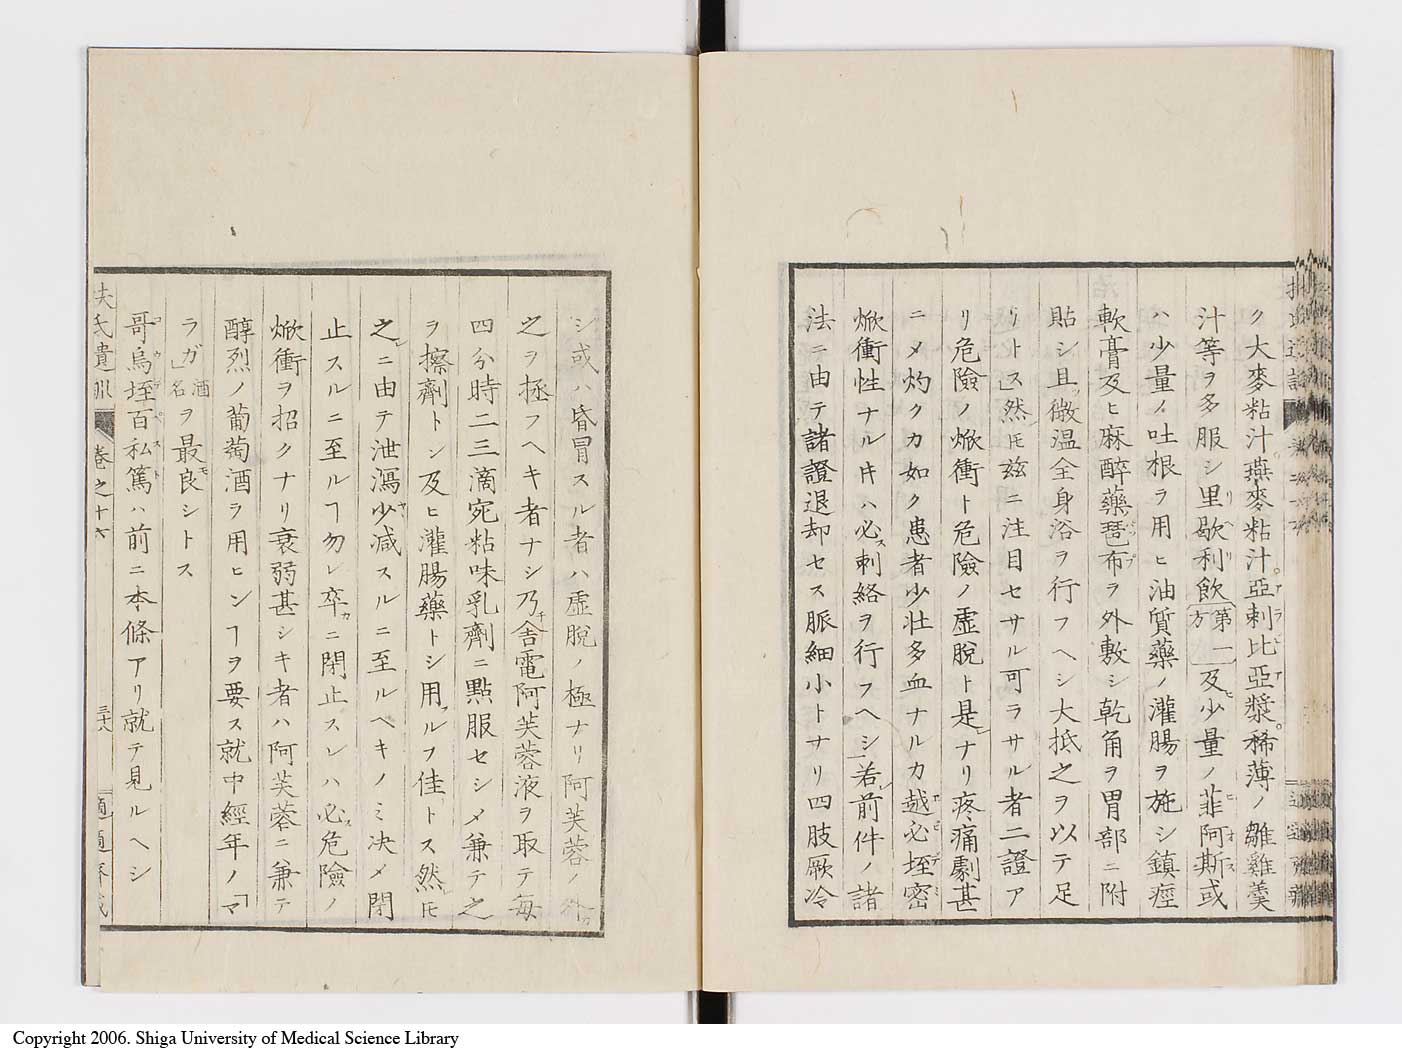 ク大麥粘汁燕麥粘汁。亞剌比亞漿。稀薄ノ雛雞羹
汁等ヲ多服シ里歇利飲第一方及少量ノ菲阿斯或
ハ少量ノ吐根ヲ用ヒ油質藥ノ灌腸ヲ施シ鎮痙
軟膏及ヒ麻醉藥琶布ヲ外敷シ乾角ヲ胃部ニ附
貼シ且ツ微温全身浴ヲ行フヘシ大抵之ヲ以テ足
リトス」然𪜈茲ニ注目セサル可ラサル者二證ア
リ危險ノ焮衝ト危險ノ虚脱ト是ナリ疼痛劇甚
ニメ灼クカ如ク患者少壯多血ナルカ越必垤密
焮衝性ナル片ハ必ス刺絡ヲ行フヘシ」若シ前件ノ諸
法ニ由テ諸證退却セス脈細小トナリ四肢厥冷
シ或ハ昏冒スル者ハ虚脱ノ極ナリ阿芙蓉ノ外
之ヲ拯フヘキ者ナシ乃チ舎電阿芙蓉液ヲ取テ毎
四分時二三滴宛粘味乳劑ニ點服セシメ兼テ之
ヲ擦劑トシ及ヒ灌腸藥トシ用フルヲ佳トス然レ𪜈
之ニ由テ泄瀉少ク減スルニ至ルヘキノミ決メ閉
止スルニ至ルヿ勿レ卒カニ閉止スレハ必ス危險ノ
焮衝ヲ招クナリ衰弱甚シキ者ハ阿芙蓉ニ兼テ
醇烈ノ葡萄酒ヲ用ヒンヿヲ要ス就中經年ノ「マ
ラガ」酒名ヲ最モ良シトス
哥烏垤百私篤ハ前ニ本條アリ就テ見ルヘシ
扶氏遺訓 卷之十六 三十八 適適齋藏